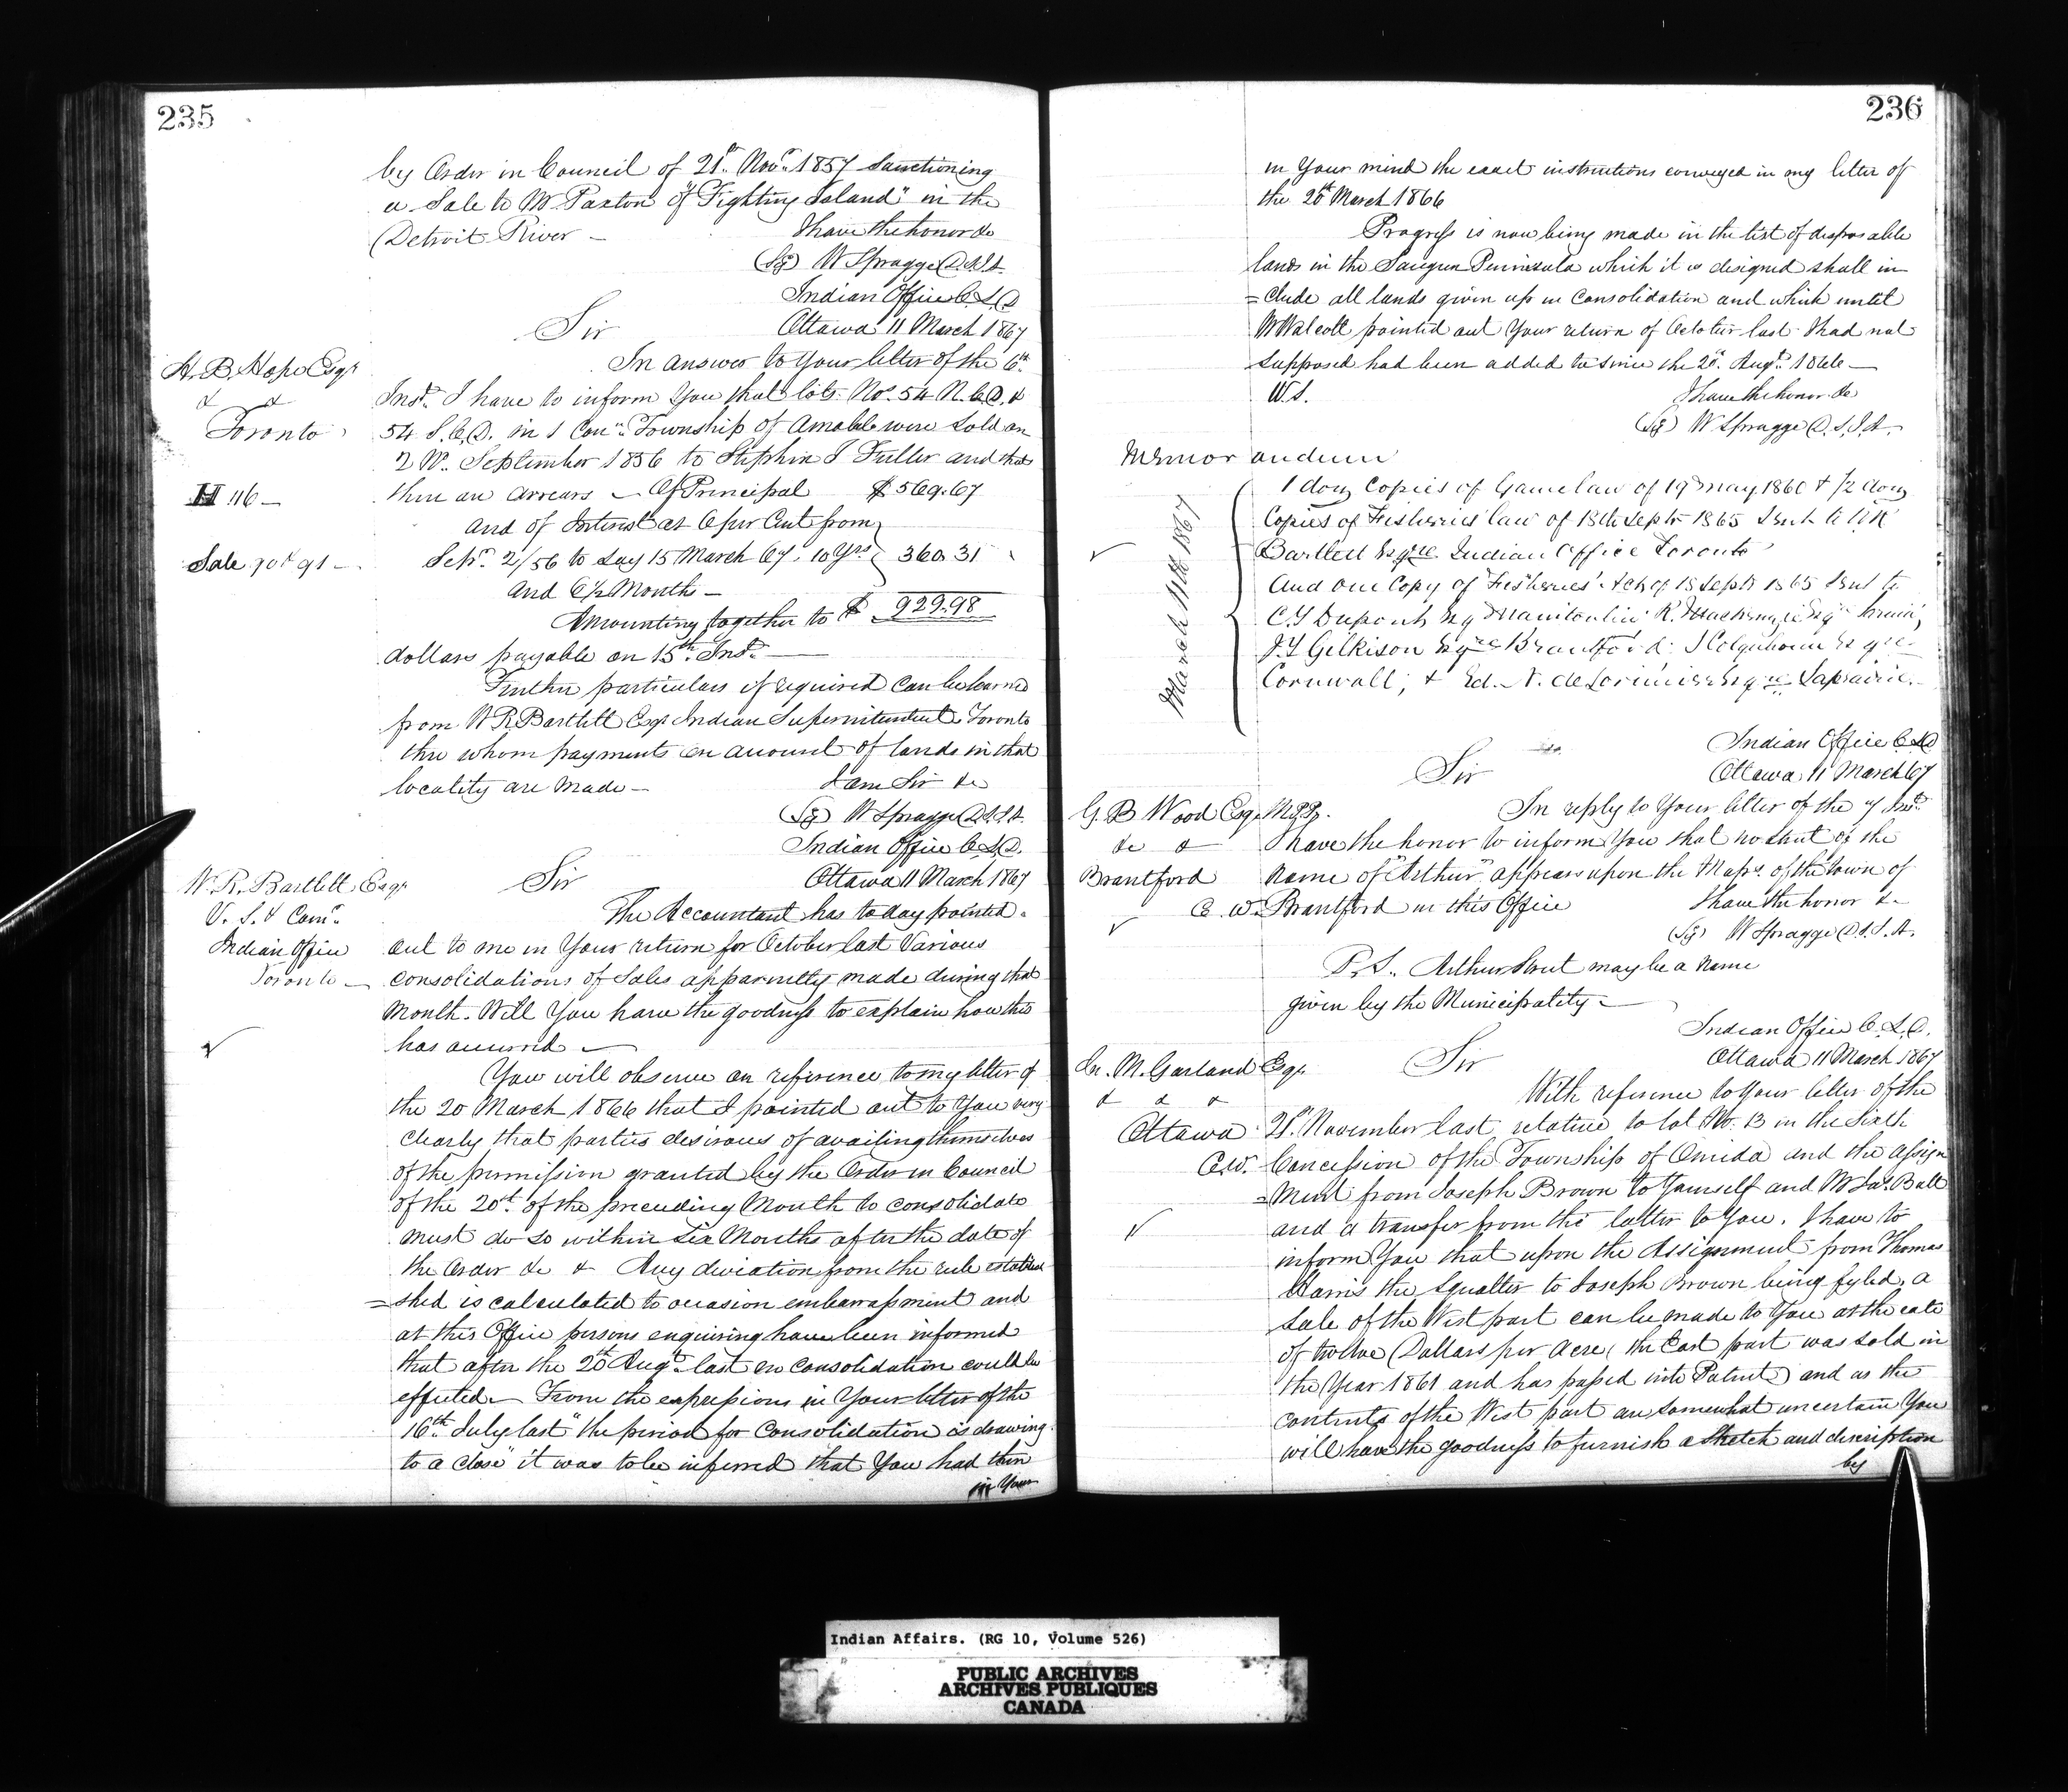 235
by Order in Council of 21st Novr. 1857 sanctioning
a Sale to Mr Paxton of "Fighting Island" in the
Detroit River – I have the honor &c
(Sg) W Spragge D.S.I.A.
Indian Office C.L.D
Sir Ottawa 11 March 1867
H. B. Hope Esqr
& &
Toronto
H 116 –
Sale 90 & 91 –
In answer to Your letter of the 6th
Inst. I have to inform You that lots Nos. 54 N.C.D. &
54 S.C.D. in 1 Con. Township of Amable were Sold on
2 September 1856 to Stephen J Fuller and that
there are arrears – Of Principal $569.67
and of Interest at 6 per Cent from
Sepr. 2/56 to day 15 March 67, 10 Yrs 360.31
and 6½ Months –
Amounting together to $ 929.98
dollars payable on 15th Inst. –
Further particulars if required can be learned
from W R Bartlett Esqr Indian Superintendent Toronto
thro whom payments on account of lands in that
locality are made – I am Sir &c
(Sg) W Spragge D.S.I.A.
Indian Office C.L.D.
Sir Ottawa 11 March 1867
W. R. Bartlett Esqr
V. S. & Comr.
Indian Office
Toronto –
The Accountant has today pointed
out to me in Your return for October last Various
consolidations of Sales apparently made during that
Month. Will You have the goodness to explain how this
has occurred –
You will observe on reference to my letter of
the 20 March 1866 that I pointed out to You very
clearly that parties desirous of availing themselves
of the permission granted by the Order in Council
of the 20th of the preceding Month to consolidate
must do so within Six Months after the date of
the Order &c & Any deviation from the rule establi
=shed is calculated to occasion embarrassment and
at this Office persons enquiring have been informed
that after the 20th Augt. last no consolidation could be
effected – From the expressions in Your letter of the
16th July last "the period for Consolidation is drawing
to a close" it was to be inferred that You had then
in Your
236
in Your mind the exact instructions conveyed in my letter of
the 20th March 1866
Progress is now being made in the list of disposable
lands in the Saugeen Peninsula which it is designed shall in
=clude all lands given up in Consolidation and which until
Mr Walcott pointed out Your return of October last I had not
supposed had been added to since the 20th Augt. 1866 –
W.S. I have the honor &c
(Sg) W Spragge D.S.I.A.
Memorandum
March 11th 1867
1 doz Copies of Game law of 19 May 1860 & ½ doz
Copies of Fisheries law of 18th Septr 1865 sent to W R
Bartlett Esqre Indian Office Toronto
And one Copy of Fisheries Act of 18 Septr 1865 sent to
C. T Dupont Esq Manitoulin R. Mackenzie Esq Sarnia,
J. T Gilkison Esqre Brantford. J Colquhoun Esqre
Cornwall, & Ed. N. de Lorimier Esqre Laprairie. –
Indian Office C.L.D
Sir Ottawa 11 March 67
G. B Wood Esqr M.P.P.
&c &
Brantford
C. W.
In reply to Your letter of the 7 Inst.
I have the honor to inform You that no Street of the
name of "Arthur" appears upon the Maps of the town of
Brantford in this Office I have the honor &c
(Sg) W Spragge D.S.I.A.
P.S. Arthur Street may be a Name
given by the Municipality –
Indian Office C.L.D.
Sir Ottawa 11 March 1867
M. Garland Esqr.
& & &
Ottawa
C.W.
With reference to Your letter of the
21st November last relative to lot No. 13 in the Sixth
Concession of the Township of Oneida and the assign
=ment from Joseph Brown to Yourself and Mr Jas. Ball
and a transfer from the latter to You. I have to
inform You that upon the Assignment from Thomas
Harris the Squatter to Joseph Brown being fyled, a
Sale of the West part can be made to You at the rate
of twelve Dollars per Acre (the East part was sold in
the Year 1861 and has passed into Patent) and as the
contents of the West part are somewhat uncertain You
will have the goodness to furnish a Sketch and description
by
Indian Affairs. (RG 10, Volume 526)
PUBLIC ARCHIVES
ARCHIVES PUBLIQUES
CANADA